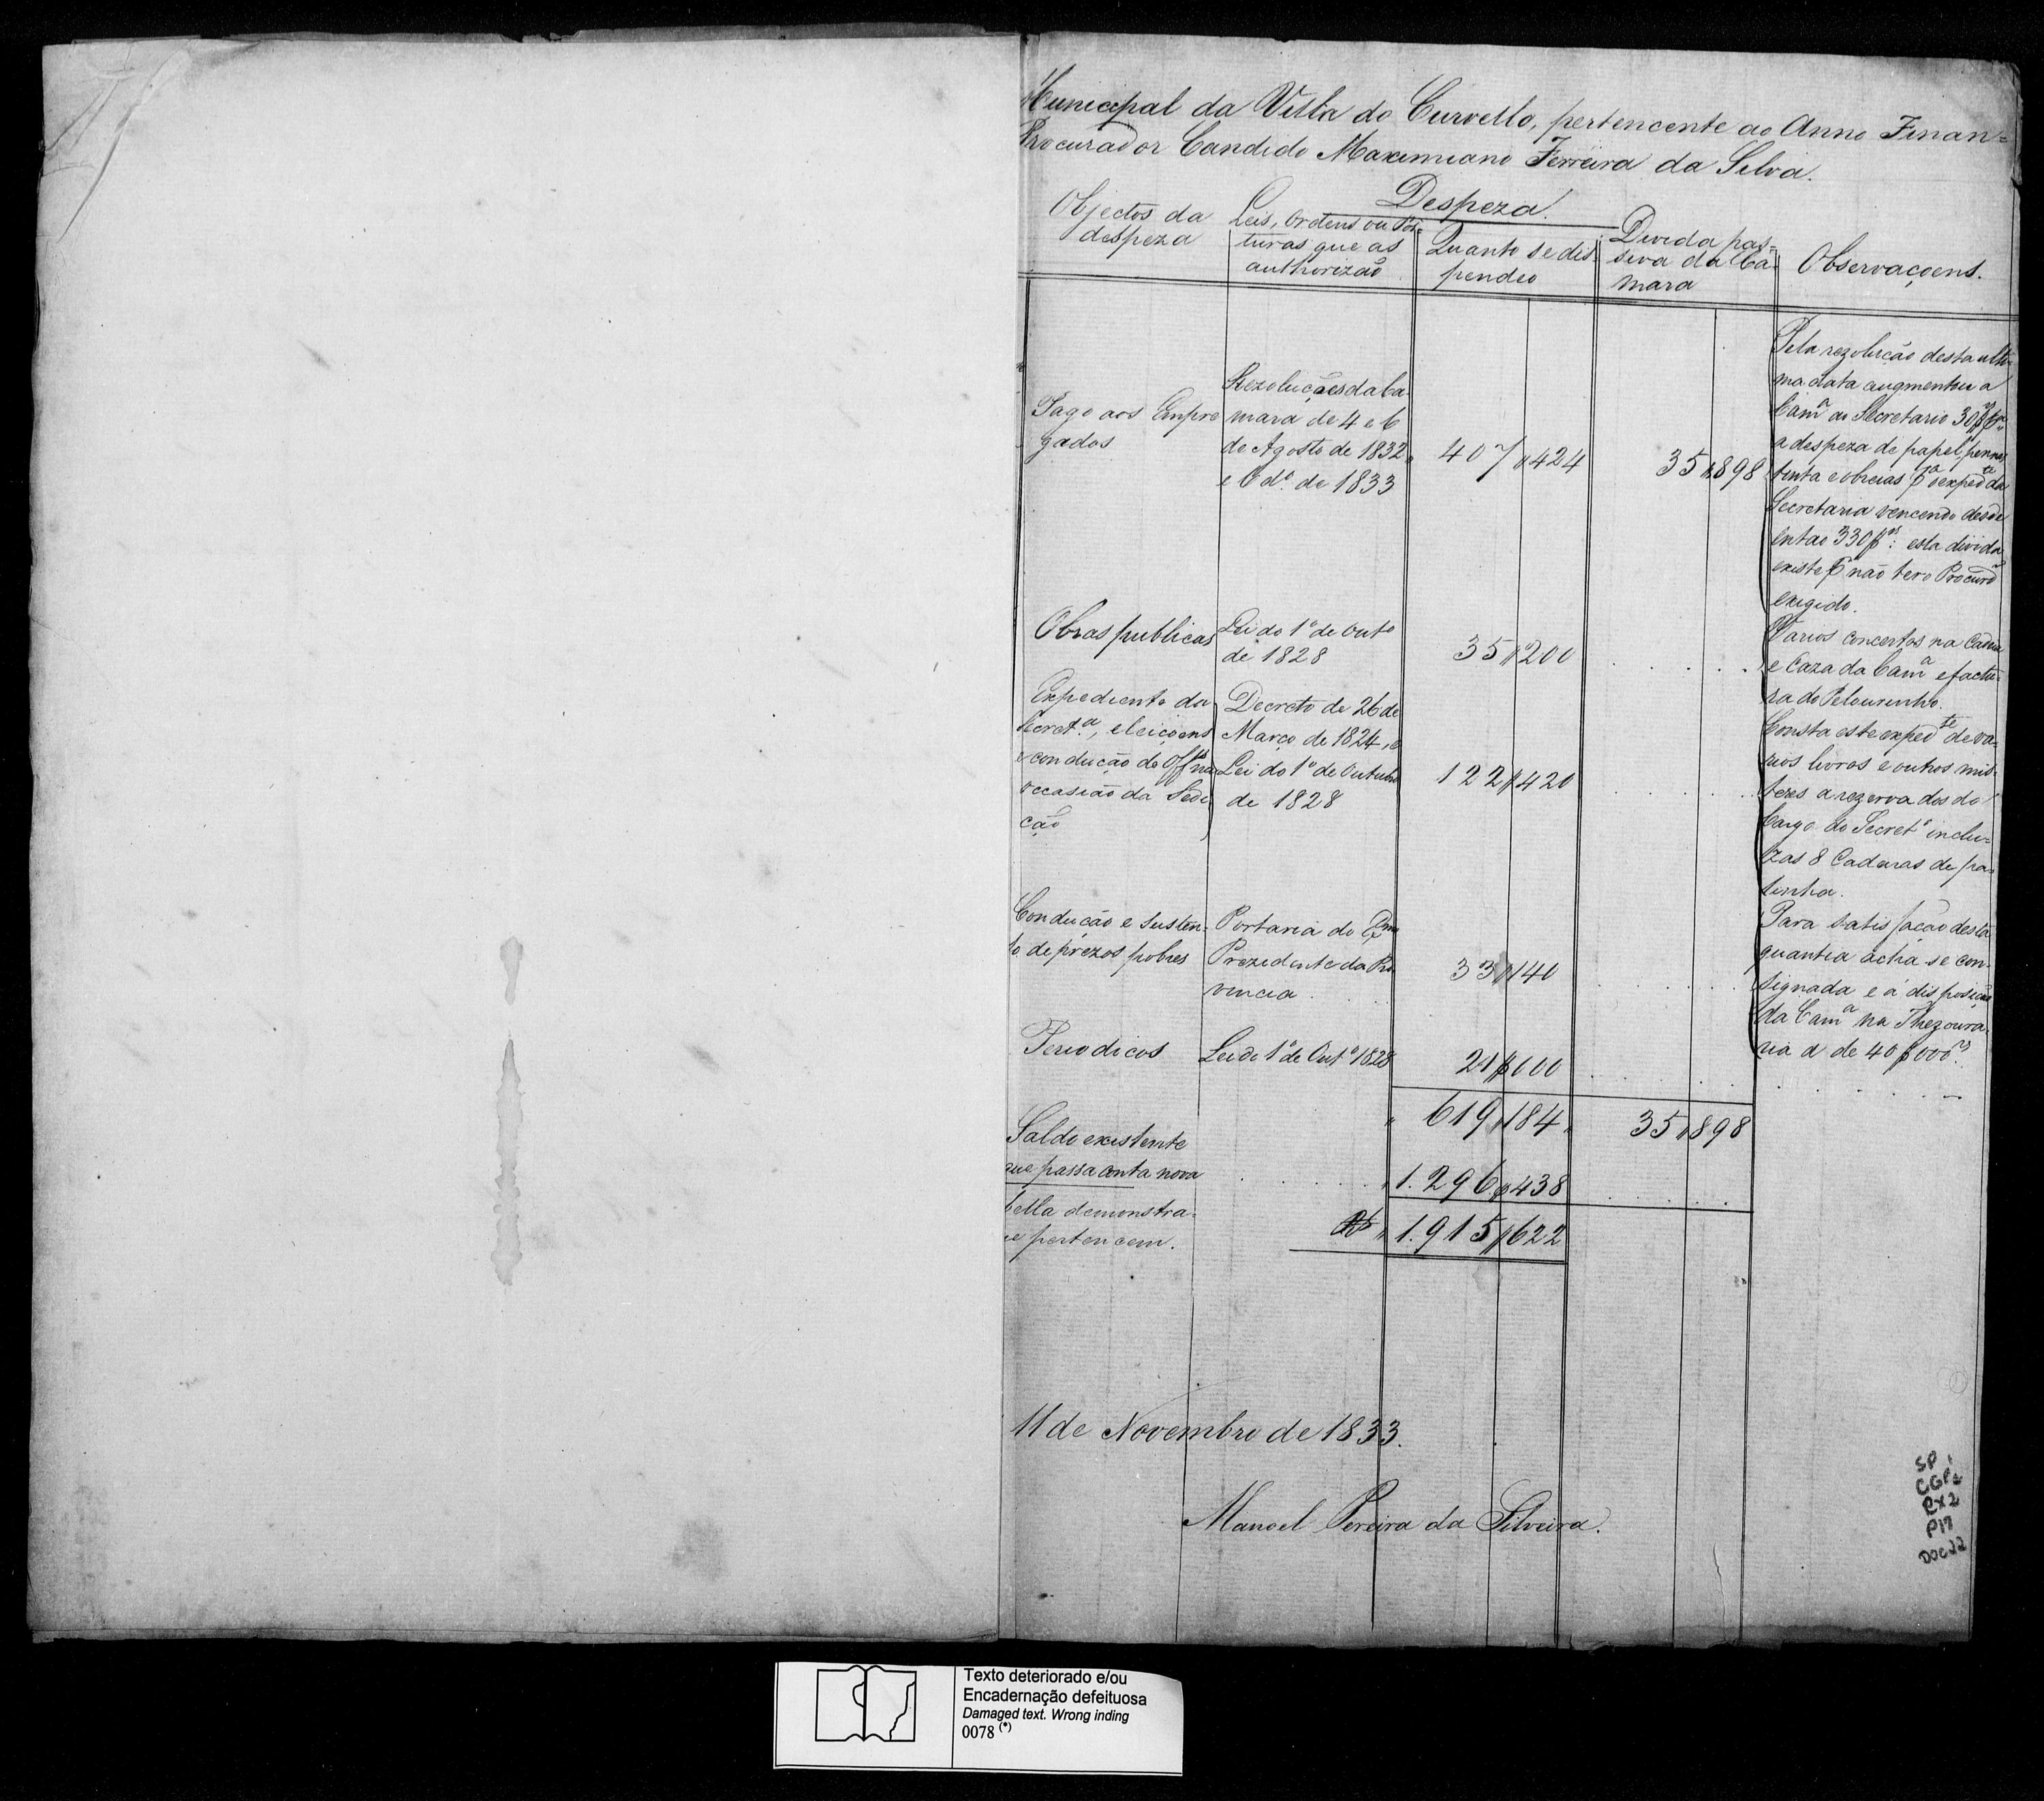 Municipal da Villa do Curvello, pertencente ao Anno Finan=
Procurador Candido Maximiano Ferreira da Silva.
Despeza.
Objectos da
despeza
Leis, Ordens ou Pos-
turas que as
authorizão
Quanto se dis-
pendeo
Divida pas-
siva da Ca-
mara
Observaçoens.
Pago aos Empre
gados
Rezoluções da Ca-
mara de 4 e 6
de Agosto de 1832
e 6 dº. de 1833
407$424
35$898
Pela rezolução desta ulti-
ma data augmentou a
Camª ao Secretario 30$
a despeza de papel, penna,
tinta e obreias pª o expedte da
Secretaria vencendo desde
entao 330$rs: esta divida
existe p não ter o Procuror
exigido.
Obras publicas
Lei do 1º de Outº
de 1828
35$200
Varios concertos na Cadeia
e Caza da Camª e factu-
ra do Pelourinho.
Expediente da
Secretª, eleiçoens
e condução de Offos na
occasião da Sedi
ção
Decreto de 26 de
Março de 1824, e
Lei do 1º de Outubro
de 1828
122$420
Consta este expedte de va-
rios livros e outros mis-
teres a rezerva dos do
Cargo do Secretº inclu-
zas 8 Cadeiras de pa-
linha.
Condução e susten-
to de prezos pobres
Portaria do Exmo
Prezidente da Pro
vincia
33$140
Para satisfação desta
quantia acha-se con-
signada e á disposição
da Camª na Thezoura-
ria a de 40$000rs.
Periodicos
Lei do 1º de Outº 1828
21$000
619$184
35$898
Saldo existente
que passa a conta nova
1.296$438
bella demonstra-
e pertencem.
Rs 1.915$622
11 de Novembro de 1833.
Manoel Pereira da Silveira.
SP 1
CGP1
CX2
P17
DOC22
Texto deteriorado e/ou
Encadernação defeituosa
Damaged text. Wrong inding
0078 (*)